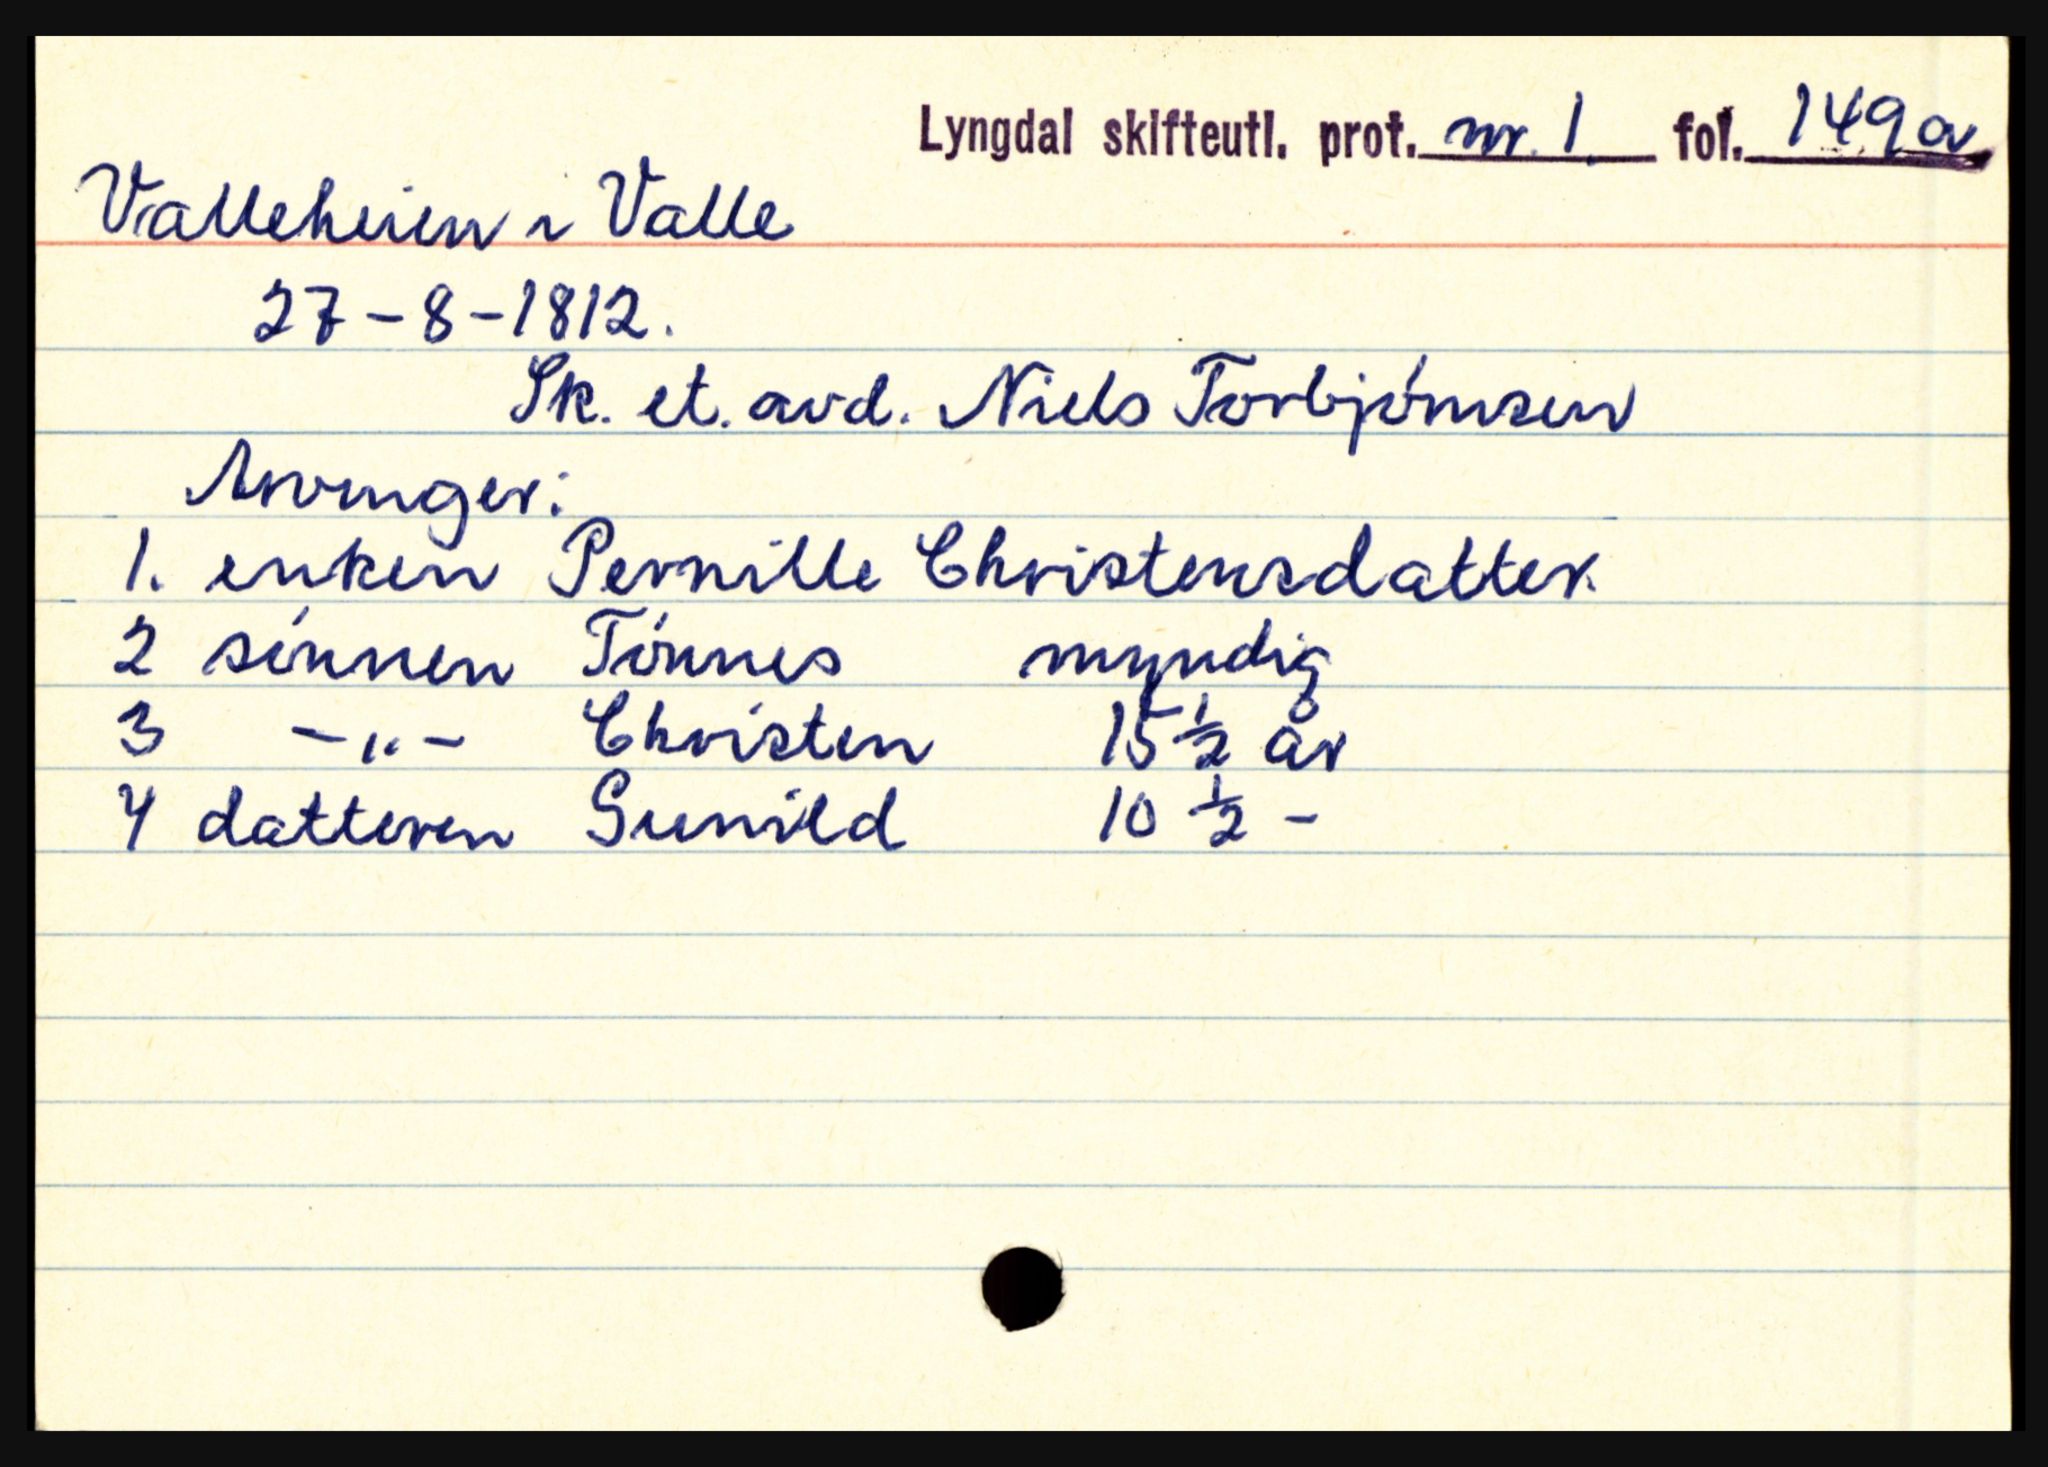 Lyngdal skifteutl. prot. nr. 1. fol. 149a
Valleheien i Valle
27-8-1812.
Sk. et. avd. Niels Torbjørnsen
Arvinger:
1. enken Pernille Christensdatter.
2 sønnen Tønnes myndig
3 -"- Christen 15 ½ år
4 datteren Gunild 10 ½ -